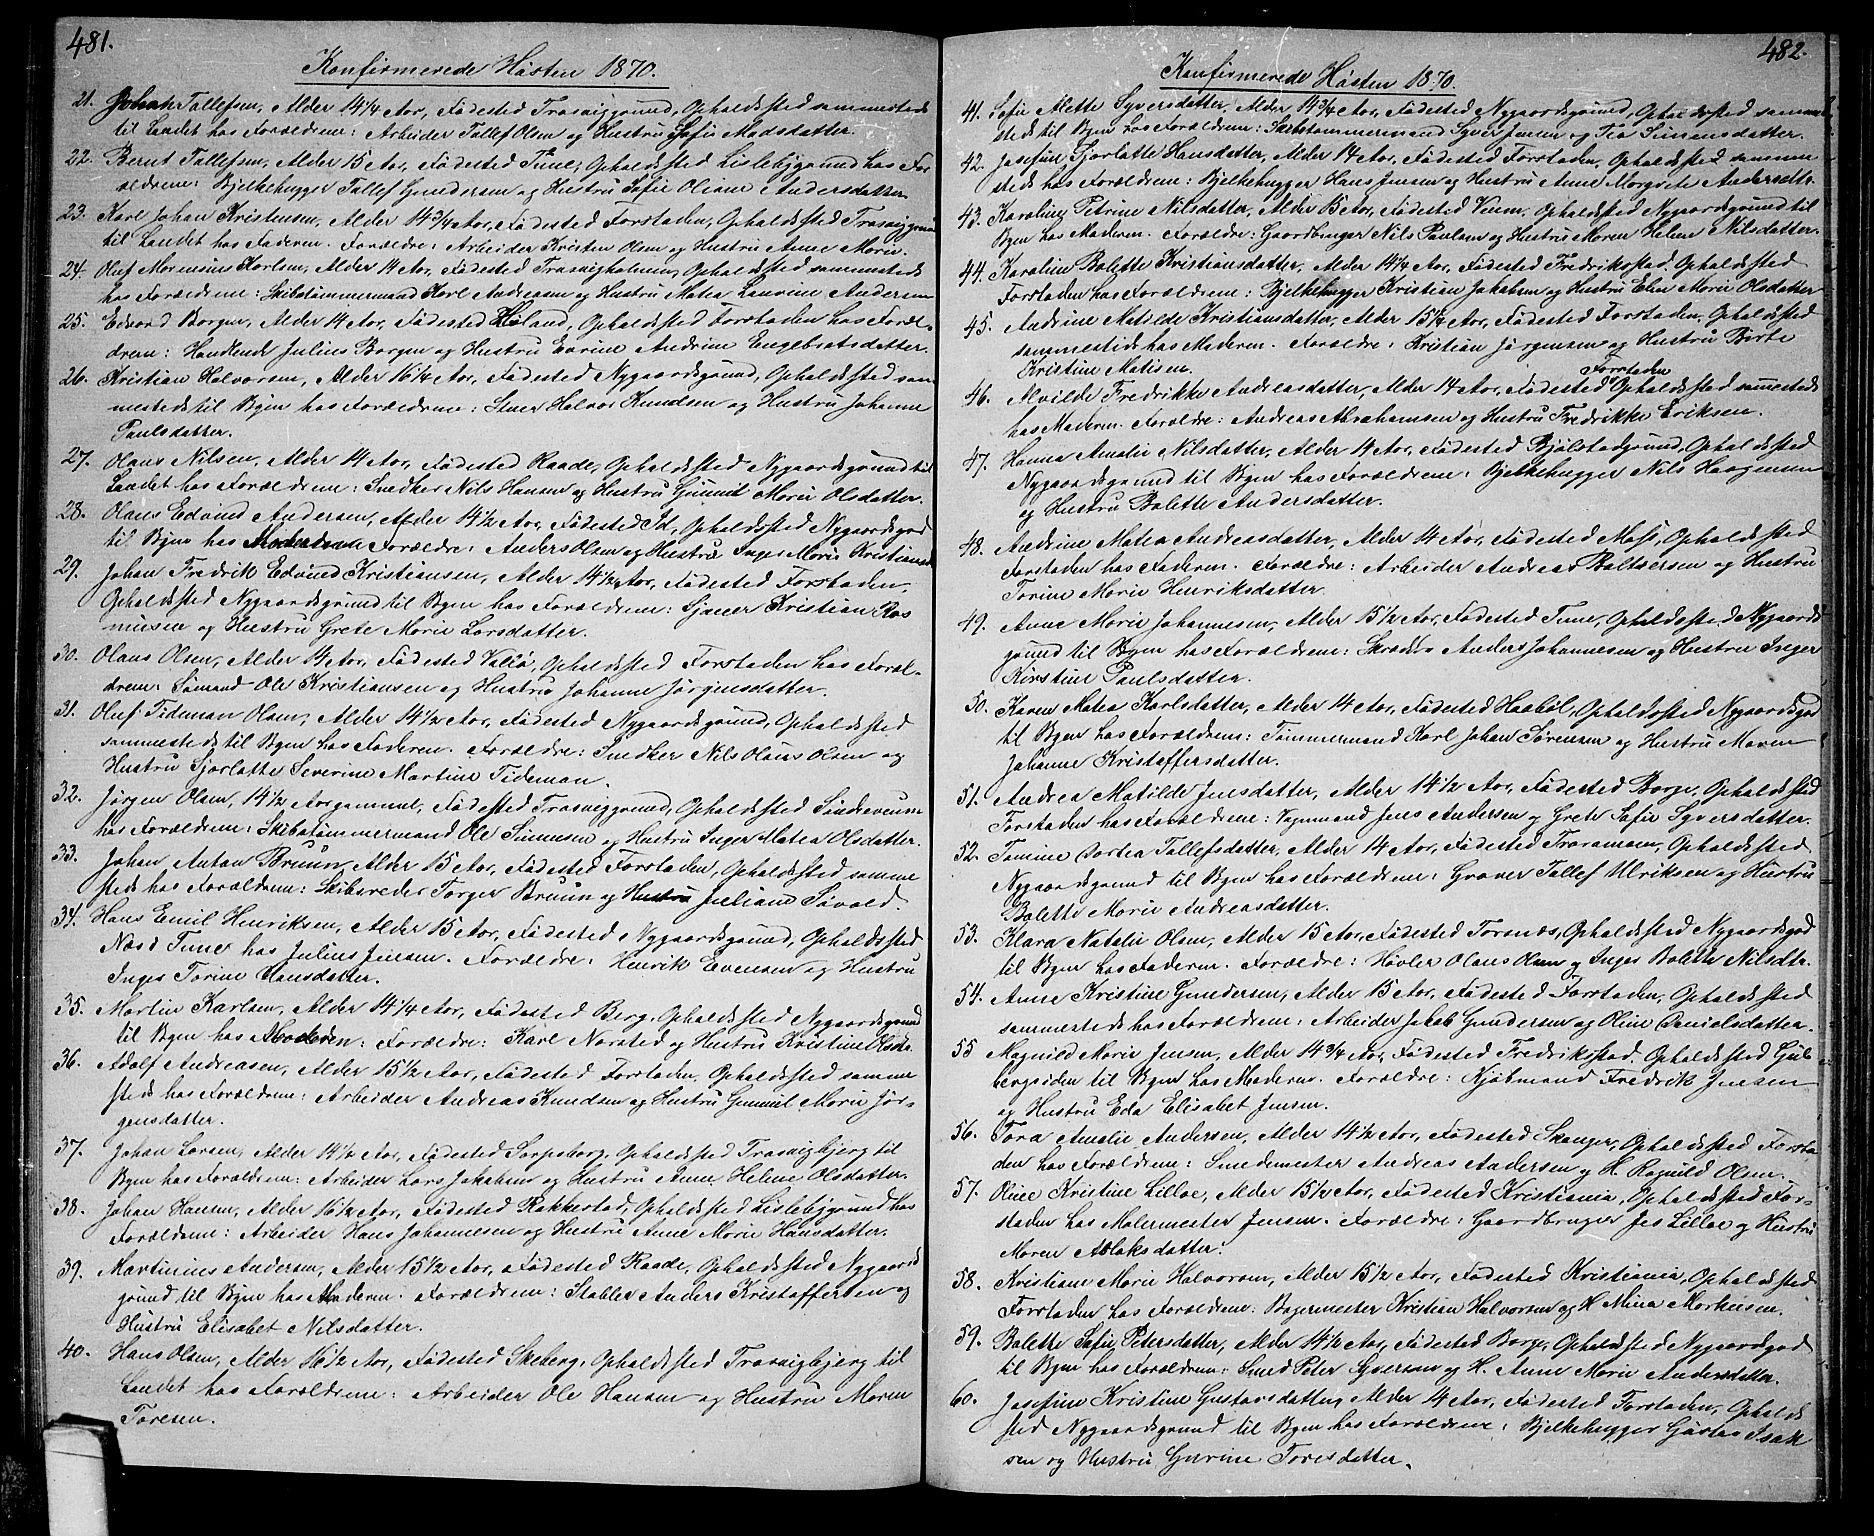 481.
Konfirmerede Høsten 1870.
21. Johan Tollefsen, Alder 14 1/4 Aar, Fødested Trosviggrund, Opholdssted sammesteds
til Landet hos Forældrene: Arbeider Tollef Olsen og Hustru Sofie Madsdatter.
22. Bernt Tollefsen, Alder 15 Aar, Fødested Tune, Opholdssted Lislebygrund hos For
ældrene: Bjelkehugger Tollef Gundersen og Hustru Sofie Oliane Andersdatter.
23. Karl Johan Kristensen, Alder 14 3/4 Aar, Fødested Forstaden, Opholdssted Trosviggrund
til Landet hos Faderen. Forældre: Arbeider Kristen Olsen og Hustru Anne Marie.
24. Oluf Morensius Karlsen, Alder 14 Aar, Fødested Trosvigholmen, Opholdssted sammesteds
hos Forældrene: Skibstømmermand Karl Andreasen og Hustru Matea Laurine Andersen
25. Edvard Borgen, Alder 14 Aar, Fødested Høland, Opholdssted Forstaden hos Foræl-
drene: Handlende Julius Borgen og Hustru Evrine Andrine Engebretsdatter.
26. Kristian Halvorsen, Alder 16 1/4 Aar, Fødested Nygaardsgrund, Opholdssted sam-
mesteds til Byen hos Forældrene: Stuer Halvor Knudsen og Hustru Johanne
Paulsdatter.
27. Olaus Nilsen, Alder 14 Aar, Fødested Raade, Opholdssted Nygaardsgrund til
Landet hos Forældrene: Snedker Nils Hansen og Hustru Gunnil Marie Olsdatter.
28. Olaus Edvind Andersen, Alder 14 1/2 Aar, Fødested Id, Opholdssted Nygaardsgrd
til Byen hos Moderen. Forældre: Anders Olsen og Hustru Inger Marie Kristiansd
29. Johan Fredrik Edvind Kristiansen, Alder 14 1/2 Aar, Fødested Forstaden,
Opholdssted Nygaardsgrund til Byen hos Forældrene: Sjauer Kristian Ras
mussen og Hustru Grete Marie Larsdatter.
30. Olaus Olsen, Alder 14 Aar, Fødested Vallø, Opholdssted Forstaden hos Foræl-
drene: Sømand Ole Kristiansen og Hustru Johanne Jørginesdatter.
31. Oluf Tideman Olsen, Alder 14 1/2 Aar, Fødested Nygaardsgrund, Opholdssted
sammesteds til Byen hos Faderen. Forældre: Snedker Nils Olaus Olsen og
Hustru Sjarlotte Severine Martine Tideman.
32. Jørgen Olsen, 14 1/2 Aargammel, Fødested Trosviggrund, Opholdssted Sindreveum
hos Forældrene: Skibstømmermand Ole Simensen og Hustru Inger Matea Olsdatter.
33. Johan Anton Bruun, Alder 15 Aar, Fødested Forstaden, Opholdssted samme
steds hos Forældrene: Skibsreder Torger Bruun og Hustru Juliane Sivold
34. Hans Emil Henriksen, Alder 15 Aar, Fødested Nygaardsgrund, Opholdssted
Næs i Tune hos Julius Jensen. Forældre: Henrik Evensen og Hustru
Inger Torine Hansdatter.
35. Martin Karlsen, Alder 14 1/4 Aar, Fødested Berg, Opholdssted Nygaardsgrund
til Byen hos Moderen. Forældre: Karl Norsted og Hustru Kristine Olsda.
36. Adolf Andreasen, Alder 15 1/2 Aar, Fødested Forstaden, Opholdssted samme
steds hos Forældrene: Arbeider Andreas Knudsen og Hustru Gunnil Marie Jør-
gensdatter.
37. Johan Larsen, Alder 14 1/2 Aar, Fødested Sarpsborg, Opholdssted Trosvigbjerg til
Byen hos Forældrene: Arbeider Lars Jakobsen og Hustru Anne Helene Olsdatter.
38. Johan Hansen, Alder 16 1/2 Aar, Fødested Rakkestad, Opholdssted Lislebygrund hos
Forældrene: Arbeider Hans Johannesen og Hustru Anne Marie Hansdatter.
39. Martinius Andersen, Alder 15 1/2 Aar, Fødested Raade, Opholdssted Nygaards
grund til Byen hos Moderen. Forældrene: Stabler Anders Kristoffersen og
Hustru Elisabet Nilsdatter.
40. Hans Olsen, Alder 16 1/2 Aar, Fødested Skeberg, Opholdssted Trosvigbjerg til
Landet hos Forældrene: Arbeider Ole Hansen og Hustru Maren
Toresen.
482.
Konfirmerede Høsten 1870.
41. Sofie Alette Syversdatter, Alder 14 3/4 Aar, Fødested Nygaardsgrund, Opholdssted samme
steds til Byen hos Forældrene: Skibstømmermand Syver Jensen og Tea Simensdatter.
42. Josefine Sjarlotte Hansdatter, Alder 14 Aar, Fødested Forstaden, Opholdssted samme
steds hos Forældrene: Bjelkehugger Hans Jensen og Hustru Anne Margrete Andersdtr.
43. Karoline Petrine Nilsdatter, Alder 15 Aar, Fødested Veum, Opholdssted Nygaardsgrund til
Byen hos Moderen. Forældre: Gaardbruger Nils Paulsen og Hustru Maren Helene Nilsdatter.
44. Karoline Bolette Kristiansdatter, Alder 14 1/4 Aar, Fødested Fredrikstad. Opholdssted
Forstaden hos Forældrene: Bjelkehugger Kristian Jakobsen og Hustru Elen Marie Olsdatter
45. Andrine Matilde Kristiansdatter, Alder 15 1/4 Aar, Fødested Forstaden, Opholdssted
sammesteds hos Moderen. Forældre: Kristian Jørgensen og Hustru Birte
Kristine Matisen.
46. Alvilde Fredrikke Andreasdatter, Alder 14 Aar, Fødested Forstaden Opholdssted sammesteds
hos Moderen. Forældre: Andreas Abrahamsen og Hustru Fredrikke Eriksen.
47. Hanna Amalie Nilsdatter, Alder 14 Aar, Fødested Bjølstadgrund, Opholdssted
Nygaardsgrund til Byen hos Forældrene: Bjelkehugger Nils Haagensen
og Hustru Bolette Andersdatter.
48. Andrine Matea Andreasdatter, Alder 14 Aar, Fødested Moss, Opholdssted
Forstaden hos Faderen. Forældre: Arbeider Andreas Baltsersen og Hustru
Torine Marie Henriksdatter.
49. Anne Marie Johannesen, Alder 15 1/2 Aar, Fødested Tune, Opholdssted Nygaards
grund til Byen hos Forældrene: Skrædder Anders Johannesen og Hustru Inger
Kirstine Paulsdatter.
50. Karen Matea Karlsdatter, Alder 14 Aar, Fødested Haabøl, Opholdssted Nygaardsgrd
til Byen hos Forældrene: Tømmermand Karl Johan Sørensen og Hustru Maren
Johanne Kristoffersdatter.
51. Andrea Matilde Jensdatter, Alder 14 1/2 Aar, Fødested Borge, Opholdssted
Forstaden hos Forældrene: Vognmand Jens Andersen og Grete Sofie Syversdatter.
52. Tomine Dortea Tollefsdatter, Alder 14 Aar, Fødested Traramoen, Opholdssted
Nygaardsgrund til Byen hos Forældrene: Graver Tollef Ulriksen og Hustru
Bolette Marie Andreasdatter.
53. Klara Natalie Olsen, Alder 15 Aar, Fødested Torsnæs, Opholdssted Nygaardsgrd
til Byen hos Faderen. Forældre: Høvler Olaus Olsen og Inger Bolette Nilsdtr.
54. Anne Kristine Gundersen, Alder 15 Aar, Fødested Forstaden, Opholdssted
sammesteds hos Forældrene: Arbeider Jakob Gundersen og Oline Danielsdatter.
55 Magnild Marie Jensen, Alder 14 3/4 Aar, Fødested Fredrikstad. Opholdssted Gul
bergsiden til Byen hos Moderen. Forældre: Kjøbmand Fredrik Jensen
og Hustru Eda Elisabet Jensen.
56. Tora Amalie Andersen, Alder 14 1/2 Aar, Fødested Skanger, Opholdssted Forsta
den hos Forældrene: Smedemester Andreas Andersen og H. Ragnild Olsen.
57. Oline Kristine Lilloe, Alder 15 1/2 Aar, Fødested Kristiania, Opholdssted For-
staden hos Malermester Jensen. Forældre: Gaardbruger Jes Lilloe og Hustru
Maren Aslaksdatter.
58. Kristiane Marie Halvorsen, Alder 15 1/2 Aar, Fødested Kristiania, Opholdssted
Forstaden hos Forældrene: Bagermester Kristian Halvorsen og H. Mina Markusen.
59. Bolette Sofie Petersdatter, Alder 14 1/2 Aar, Fødested Borge, Opholdssted Nygaardsgrd
til Byen hos Forældrene: Smed Peter Syversen og H. Anne Marie Andersdatter.
60. Josefine Kristine Gustavsdatter, Alder 14 Aar, Fødested Forstaden, Opholds
sted Nygaardsgrund til Byen hos Forældrene: Bjelkehugger Gustav Isak
sen og Hustru Gurine Toresdatter.